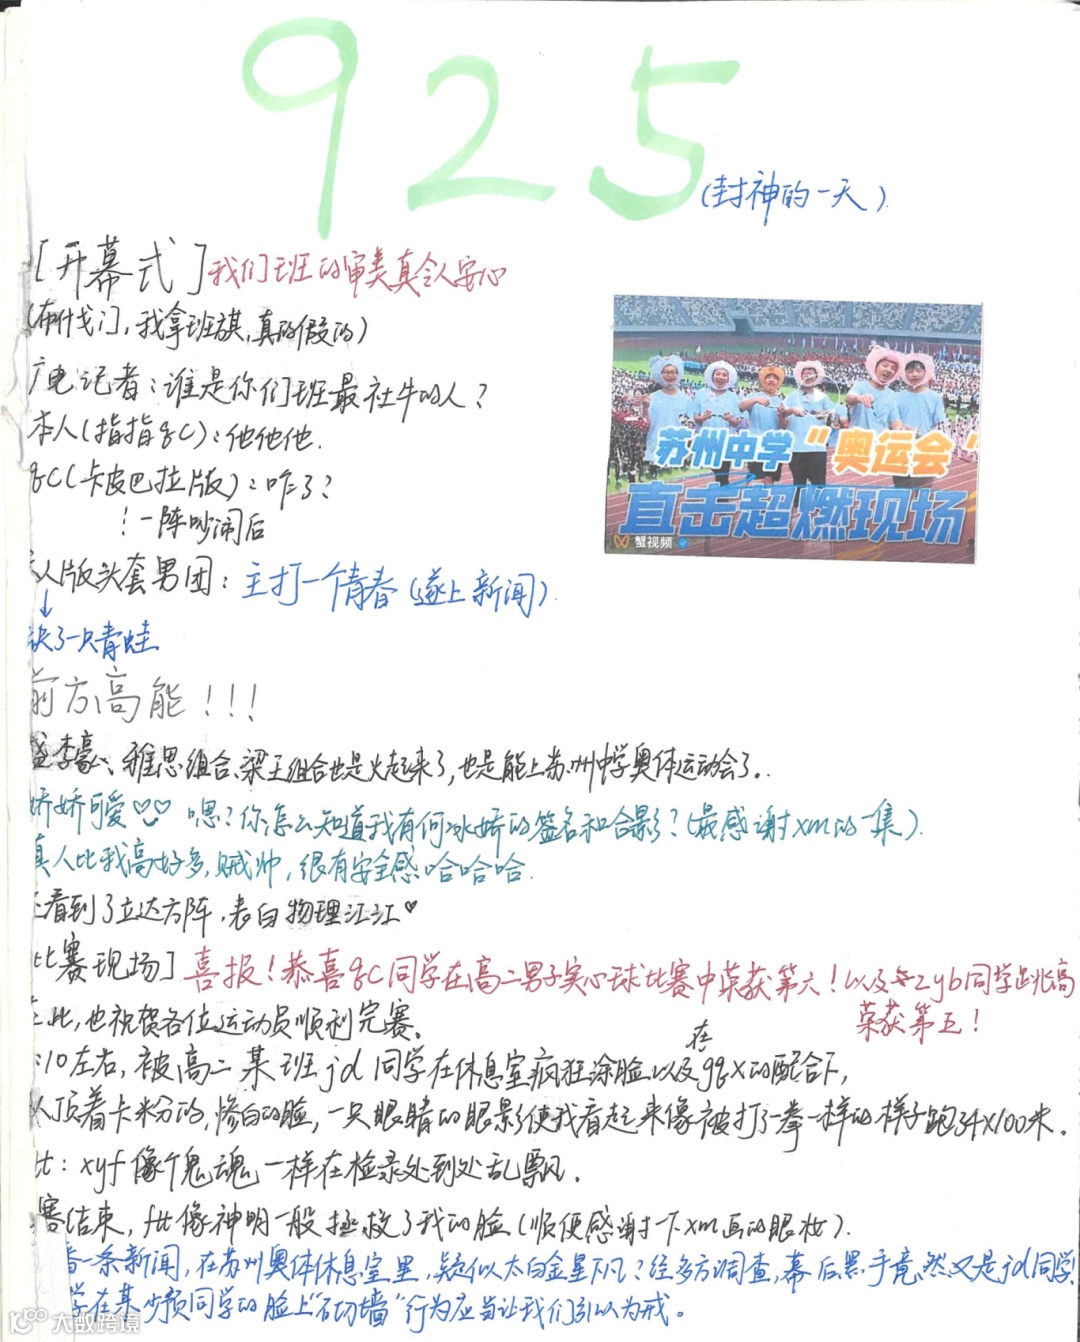 925
(封神的一天)
[开幕式]我们班的审美真令人安心
(布什戈门,我拿班旗,真的假的)
广电记者:谁是你们班最社牛的人?
本人(指指gc):他他他.
gc(卡皮巴拉版):咋了?
!一阵吵闹后
人版头套男团:主打一个青春(遂上新闻)
缺了一只青蛙
苏州中学"奥运会"
直击超燃现场
蟹视频
前方高能!!!
盛李豪、雅思组合、梁王组合也是火起来了,也是能上苏州中学奥体运动会了。
娇娇可爱♡♡ 嗯?你怎么知道我有何冰娇的签名和合影?(最感谢xm的一集).
真人比我高好多,贼帅,很有安全感哈哈哈.
看到了立达方阵,表白物理江江♥
比赛现场]喜报!恭喜gc同学在高二男子实心球比赛中荣获第六!以及zyb同学跳高
荣获第五!
在此,也祝贺各位运动员顺利完赛.
:10左右,被高二某班jd同学在休息室疯狂涂脸以及在gqx的配合下,
人顶着卡粉的,惨白的脸,一只眼睛的眼影使我看起来像被打了一拳一样的样子跑了4x100米.
tt:xyf像个鬼魂一样在检录处到处乱飘.
赛结束,ftt像神明一般拯救了我的脸(顺便感谢一下xm画的眼妆).
一条新闻,在苏州奥体休息室里,疑似太白金星下凡?经多方调查,幕后黑手竟然又是jd同学!
学在某少颜同学的脸上"砌墙"行为应当让我们引以为戒。
大数跨境